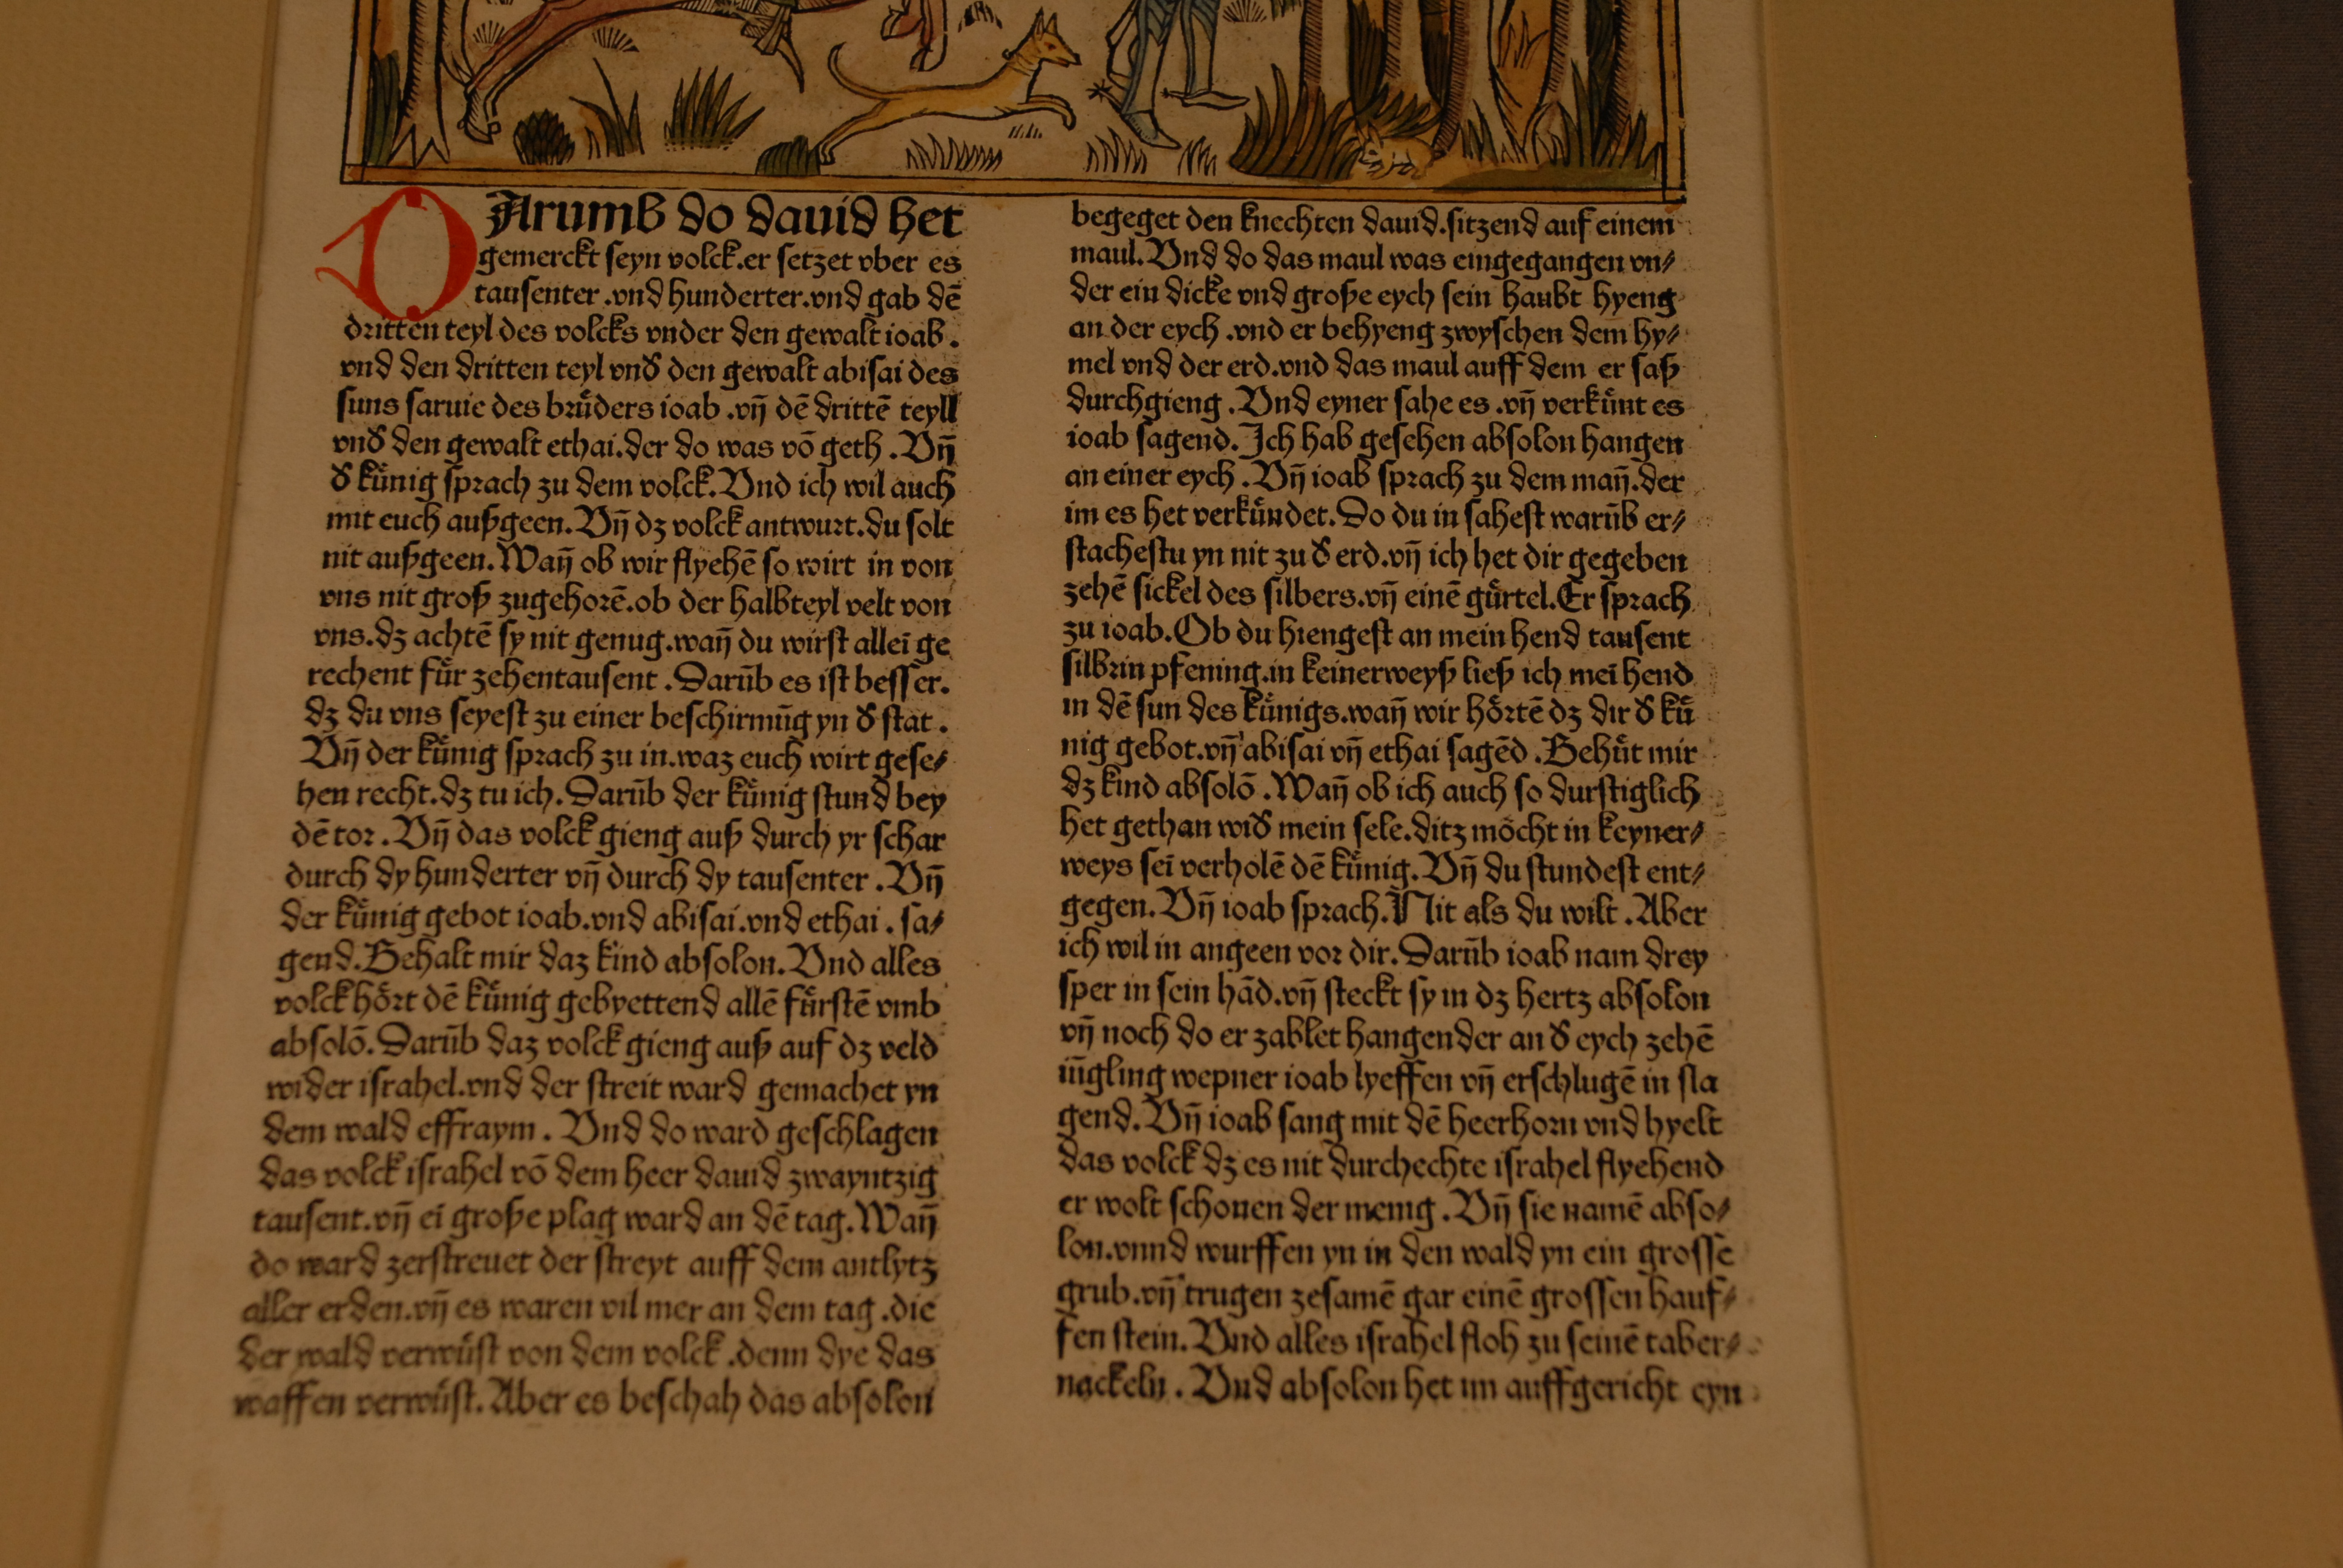 DArumb do dauid het
gemerckt seyn volck.er setzet vber es
tausenter .vnd hunderter.vnd gab dē
dritten teyl des volcks vnder den gewalt ioab .
vnd den dritten teyl vnđ den gewalt abisai des
suns saruie des bruͤders ioab .vn̄ dē drittē teyll
vnđ den gewalt ethai.der do was vō geth . Vn̄
đ kuͤnig sprach zu dem volck.Vnd ich wil auch
mit euch außgeen. Vn̄ dz volck antwurt.du solt
nit außgeen.Wan̄ ob wir flyehē so wirt in von
vns nit groß zugehorē.ob der halbteyl velt von
vns.dz achtē sy nit genug.wan̄ du wirst alleī ge
rechent fuͤr zehentausent . Darūb es ist besser.
dz du vns seyest zu einer beschirmūg yn đ stat .
Vn̄ der kuͤnig sprach zu in.waz euch wirt gese⸗
hen recht.dz tu ich. Darūb der kuͤnig stund bey
dē tor . Vn̄ das volck gieng auß durch yr schar
durch dy hunderter vn̄ durch dy tausenter . Vn̄
der kuͤnig gebot ioab.vnd abisai.vnd ethai . sa⸗
gend.Behalt mir daz kind absolon. Vnd alles
volck hoͤrt dē kuͤnig gebyettend allē fuͤrstē vmb
absolō. Darūb daz volck gieng auß auf dz veld
wider israhel.vnd der streit ward gemachet yn
dem wald effraym . Vnd do ward geschlagen
das volck israhel vō dem heer dauid zwayntzig
tausent.vn̄ eī große plag ward an dē tag.Wan̄
do ward zerstreuet der streyt auff dem antlytz
aller erden.vn̄ es waren vil mer an dem tag .die
der wald verwuͤst von dem volck .denn dye das
waffen verwuͤst. Aber es beschah das absolon
begeget den knechten dauid.sitzend auf einem
maul. Vnd do das maul was eingegangen vn⸗
der ein dicke vnd große eych sein haubt hyeng
an der eych .vnd er behyeng zwyschen dem hy⸗
mel vnd der erd.vnd das maul auff dem er saß
durchgieng . Vnd eyner sahe es .vn̄ verkuͤnt es
ioab sagend. Ich hab gesehen absolon hangen
an einer eych . Vn̄ ioab sprach zu dem man̄.der
im es het verkuͤndet.Do du in sahest warūb er⸗
stachestu yn nit zu đ erd.vn̄ ich het dir gegeben
zehē sickel des silbers.vn̄ einē guͤrtel.Er sprach
zu ioab. Ob du hiengest an mein hend tausent
silbrin pfening.in keinerweyß ließ ich meī hend
in dē sun des kuͤnigs.wan̄ wir hoͤrtē dz dir đ kuͤ
nig gebot.vn̄ abisai vn̄ ethai sagēd . Behuͤt mir
dz kind absolō . Wan̄ ob ich auch so durstiglich
het gethan wiđ mein sele.ditz moͤcht in keyner⸗
weys seī verholē dē kuͤnig. Vn̄ du stundest ent⸗
gegen. Vn̄ ioab sprach. Nit als du wilt . Aber
ich wil in angeen vor dir. Darūb ioab nam drey
sper in sein hād.vn̄ steckt sy in dz hertz absolon
vn̄ noch do er zablet hangender an đ eych zehē
iūgling wepner ioab lyeffen vn̄ erschlugē in sla
gend. Vn̄ ioab sang mit dē heerhorn vnd hyelt
das volck dz es nit durchechte israhel flyehend
er wolt schonen der menig . Vn̄ sie namē abso⸗
lon.vnnd wurffen yn in den wald yn ein grosse
grub .vn̄ trugen zesamē gar einē grossen hauf⸗
fen stein. Vnd alles israhel floh zu seinē taber⸗
nackeln . Vnd absolon het im auffgericht eyn